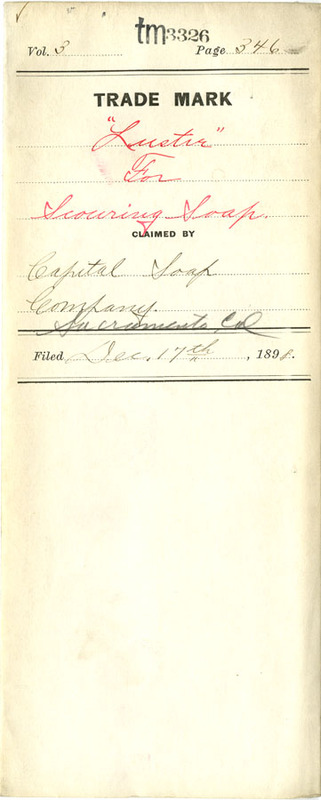 tm3326
Vol. 3 Page 346
TRADE MARK
"Luster"
For
Scouring Soap.
CLAIMED BY
Capital Soap
Company.
Sacramento, Cal
Filed Dec. 17th, 1898.